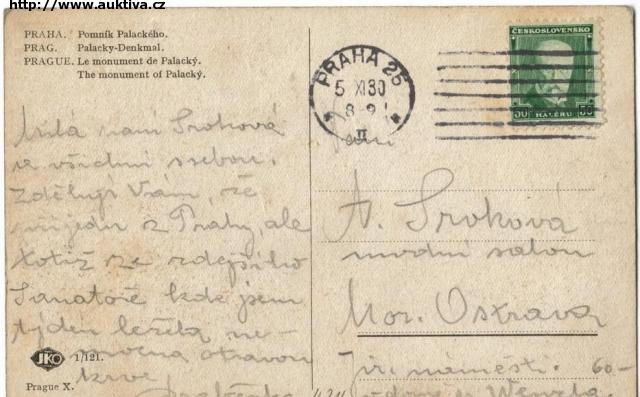 http://www.auktiva.cz
PRAHA. Pomník Palackého.
PRAG. Palacky-Denkmal.
PRAGUE. Le monument de Palacký.
The monument of Palacký.
PRAHA 25
5 XI 30
II
ČESKOSLOVENSKO
50 HALÉŘŮ 50
Milá paní Sroková
se všidmi sebou.
Zděluji Vám, že
přijedu z Prahy, ale
totiž ze zdejšího
Sanatoře kde jsem
týden ležela ne-
mocna otravou
krve
Paní
A. Sroková
modní salon
Mor. Ostrava
Jir. náměstí. 60-
JKO 1/121.
Prague X.